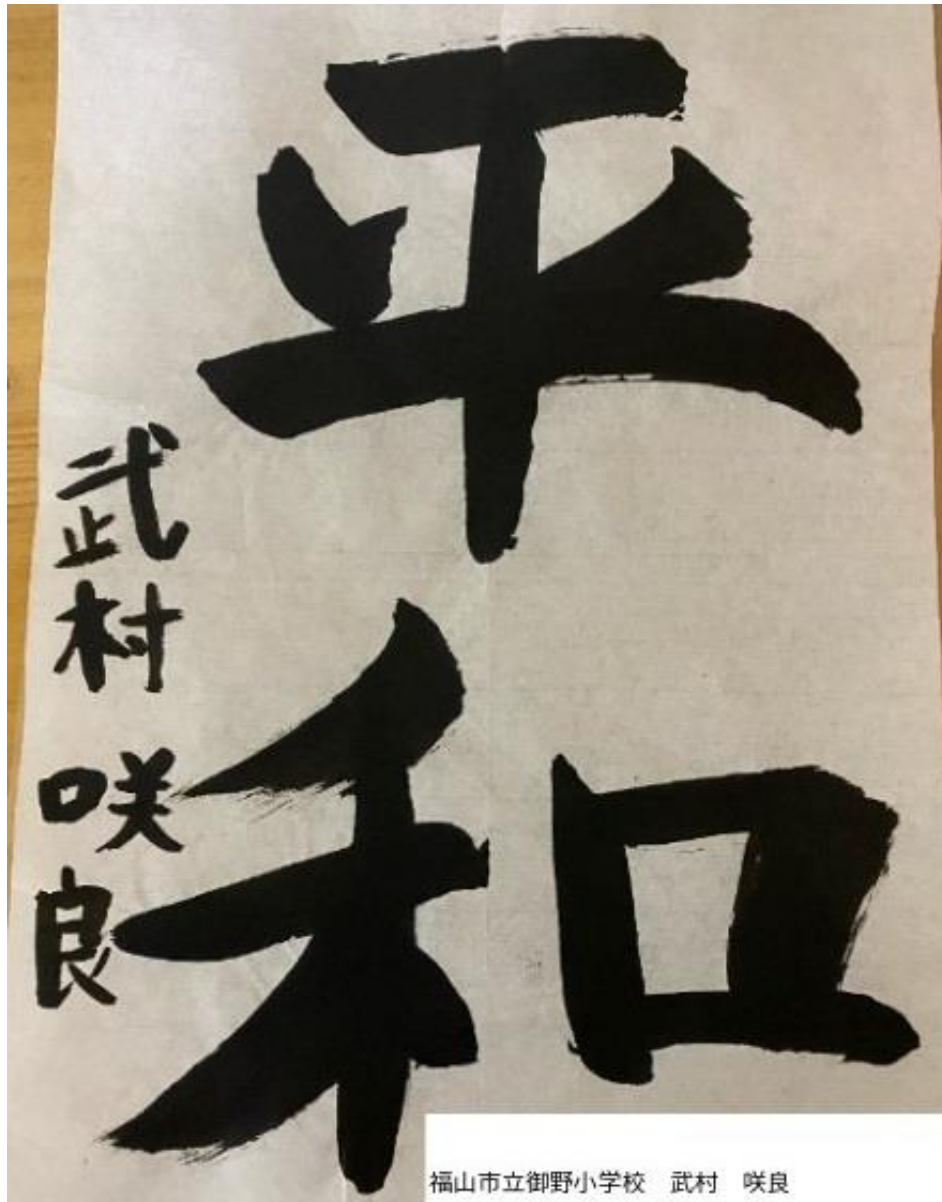 平和
武村 咲良
福山市立御野小学校　武村　咲良